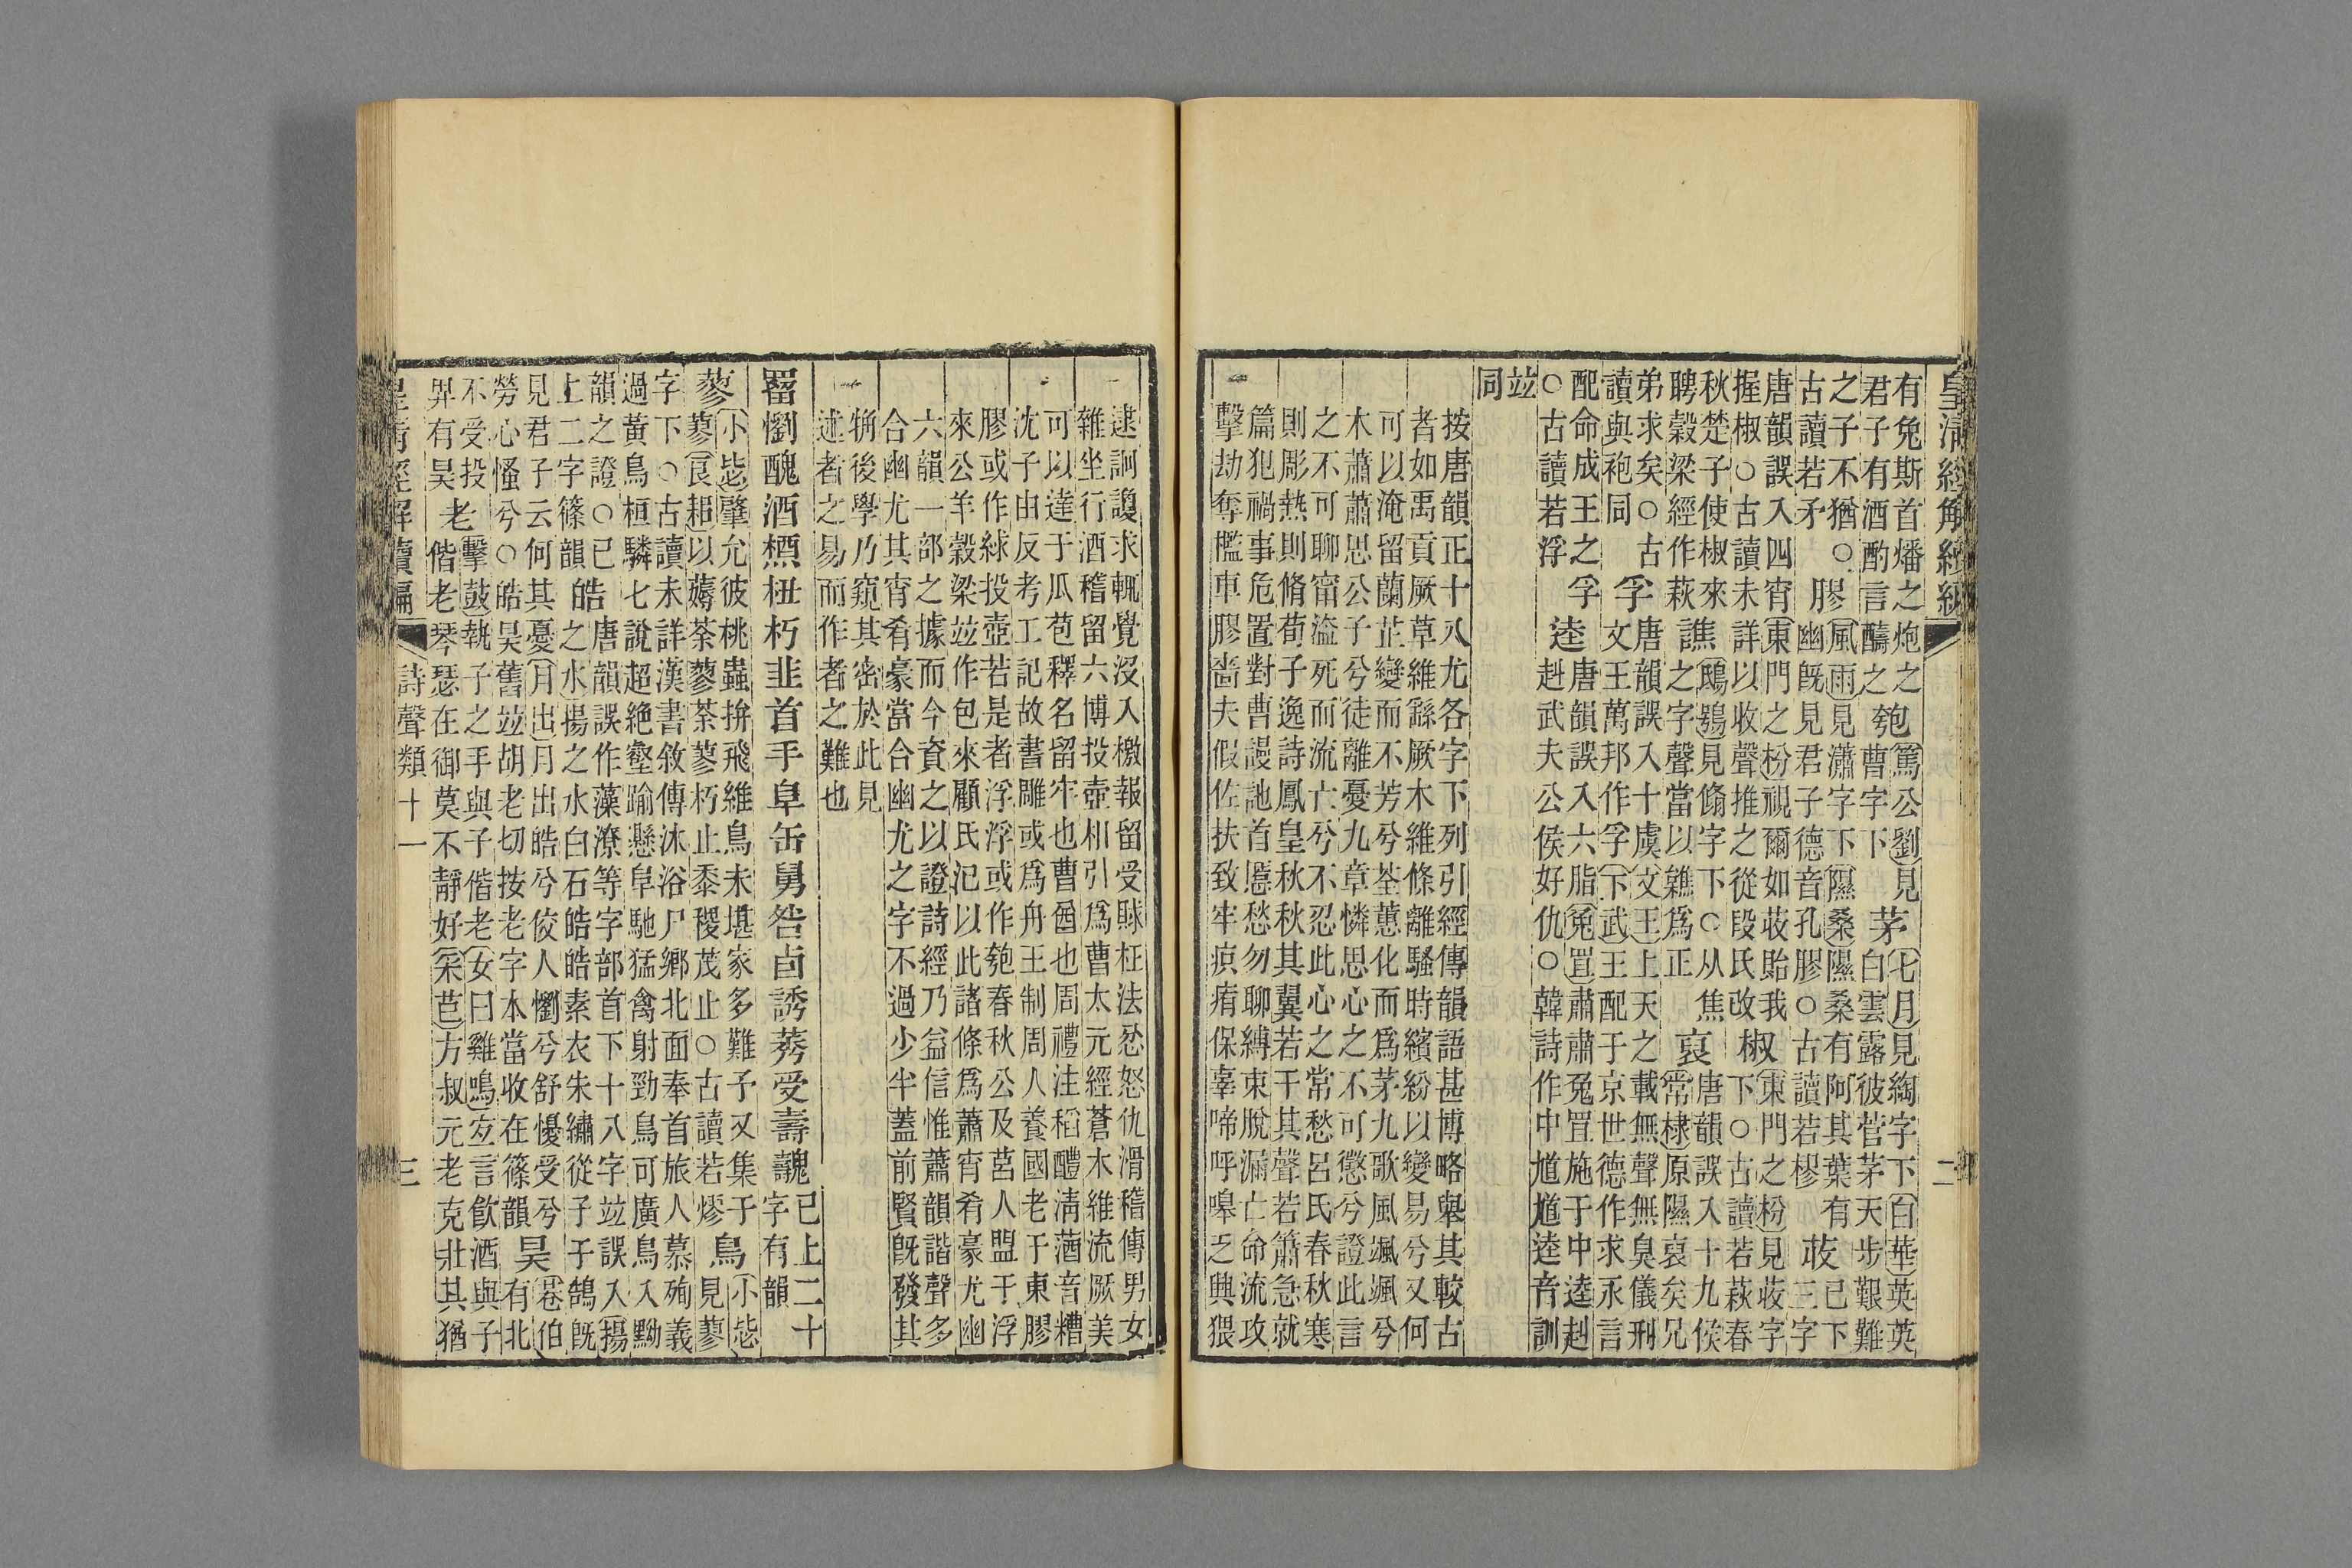 皇清經解續編
二
有兔斯首燔之炮之匏篤公劉見茅七月見綯字下白華英英
君子有酒酌言醻之曹字下白雲露彼菅茅天步艱難
之子不猶○膠風雨見瀟字下隰桑隰桑有阿其葉有荍已下
古讀若矛幽旣見君子德音孔膠○古讀若樛三字
唐韻誤入四宵東門之枌視爾如荍貽我椒東門之枌見荍字
握椒○古讀未詳以收聲推之從段氏改下○古讀若萩春
秋楚子使椒來譙鴟鴞見翛字下○从焦哀唐韻誤入十九侯
聘穀梁經作萩之字聲當以雥爲正常棣原隰裒矣兄
弟求矣○古孚唐韻誤入十虞文王上天之載無聲無臭儀刑
讀與袍同文王萬邦作孚下武王配于京世德作求永言
配命成王之孚逵唐韻誤入六脂兔罝肅肅兔罝施于中逵赳
○古讀若浮赳武夫公侯好仇○韓詩作中馗馗逵音訓
竝
同
按唐韻正十八尤各字下列引經傳韻語甚博略舉其較古
者如禹貢厥草維繇厥木維條離騷時繽紛以變易兮又何
可以淹留蘭芷變而不芳兮荃蕙化而爲茅九歌風颯颯兮
木蕭蕭思公子兮徒離憂九章憐思心之不可懲兮證此言
之不可聊寧溘死而流亡兮不忍此心之常愁呂氏春秋寒
則彫熱則脩荀子逸詩鳳皇秋秋其翼若干其聲若簫急就
篇犯禍事危置對曹謾訑首匿愁勿聊縛束脫漏亡命流攻
擊劫奪檻車膠嗇夫假佐扶致牢疻痏保辜啼呼嗥乏興猥
逮詗讂求輒覺沒入檄報留受賕枉法忿怒仇滑稽傳男女
雜坐行酒稽留六博投壺相引爲曹太元經蒼木維流厥美
可以達于瓜苞釋名留牢也曹酋也周禮注稻醴淸酒音糟
沈子由反考工記故書雕或爲舟王制周人養國老于東膠
膠或作絿投壺若是者浮浮或作匏春秋公及莒人盟于浮
來公羊穀梁竝作包來顧氏氾以此諸條爲蕭宵肴豪尤幽
六韻一部之據而今資之以證詩經乃益信惟蕭韻諧聲多
合幽尤其宵肴豪當合幽尤之字不過少半蓋前賢旣發其
牅後學乃窺其密於此見
述者之易而作者之難也
罶懰醜酒槱杻朽韭首手阜缶舅咎卣誘莠受壽魗已上二十
字有韻
蓼小毖肇允彼桃蟲拚飛維鳥未堪家多難予又集于鳥小毖
蓼良耜以薅荼蓼荼蓼朽止黍稷茂止○古讀若熮見蓼
字下○古讀未詳漢書敘傳沐浴尸鄉北面奉首旅人慕殉義
過黃鳥桓驎七說超絶壑踰懸阜馳猛禽射勁鳥可廣鳥入黝
韻之證○已皓唐韻誤作藻潦等字部首下十八字竝誤入揚
上二字篠韻之水揚之水白石皓皓素衣朱繡從子于鵠旣
見君子云何其憂月出月出皓兮佼人懰兮舒懮受兮昊巷伯
勞心慅兮○皓昊舊竝胡老切按老字本當收在篠韻有北
不受投老擊鼓執子之手與子偕老女曰雞鳴宐言飮酒與子
畀有昊偕老琴瑟在御莫不靜好采芑方叔元老克壯其猶
皇淸經解續編
詩聲類十一
三